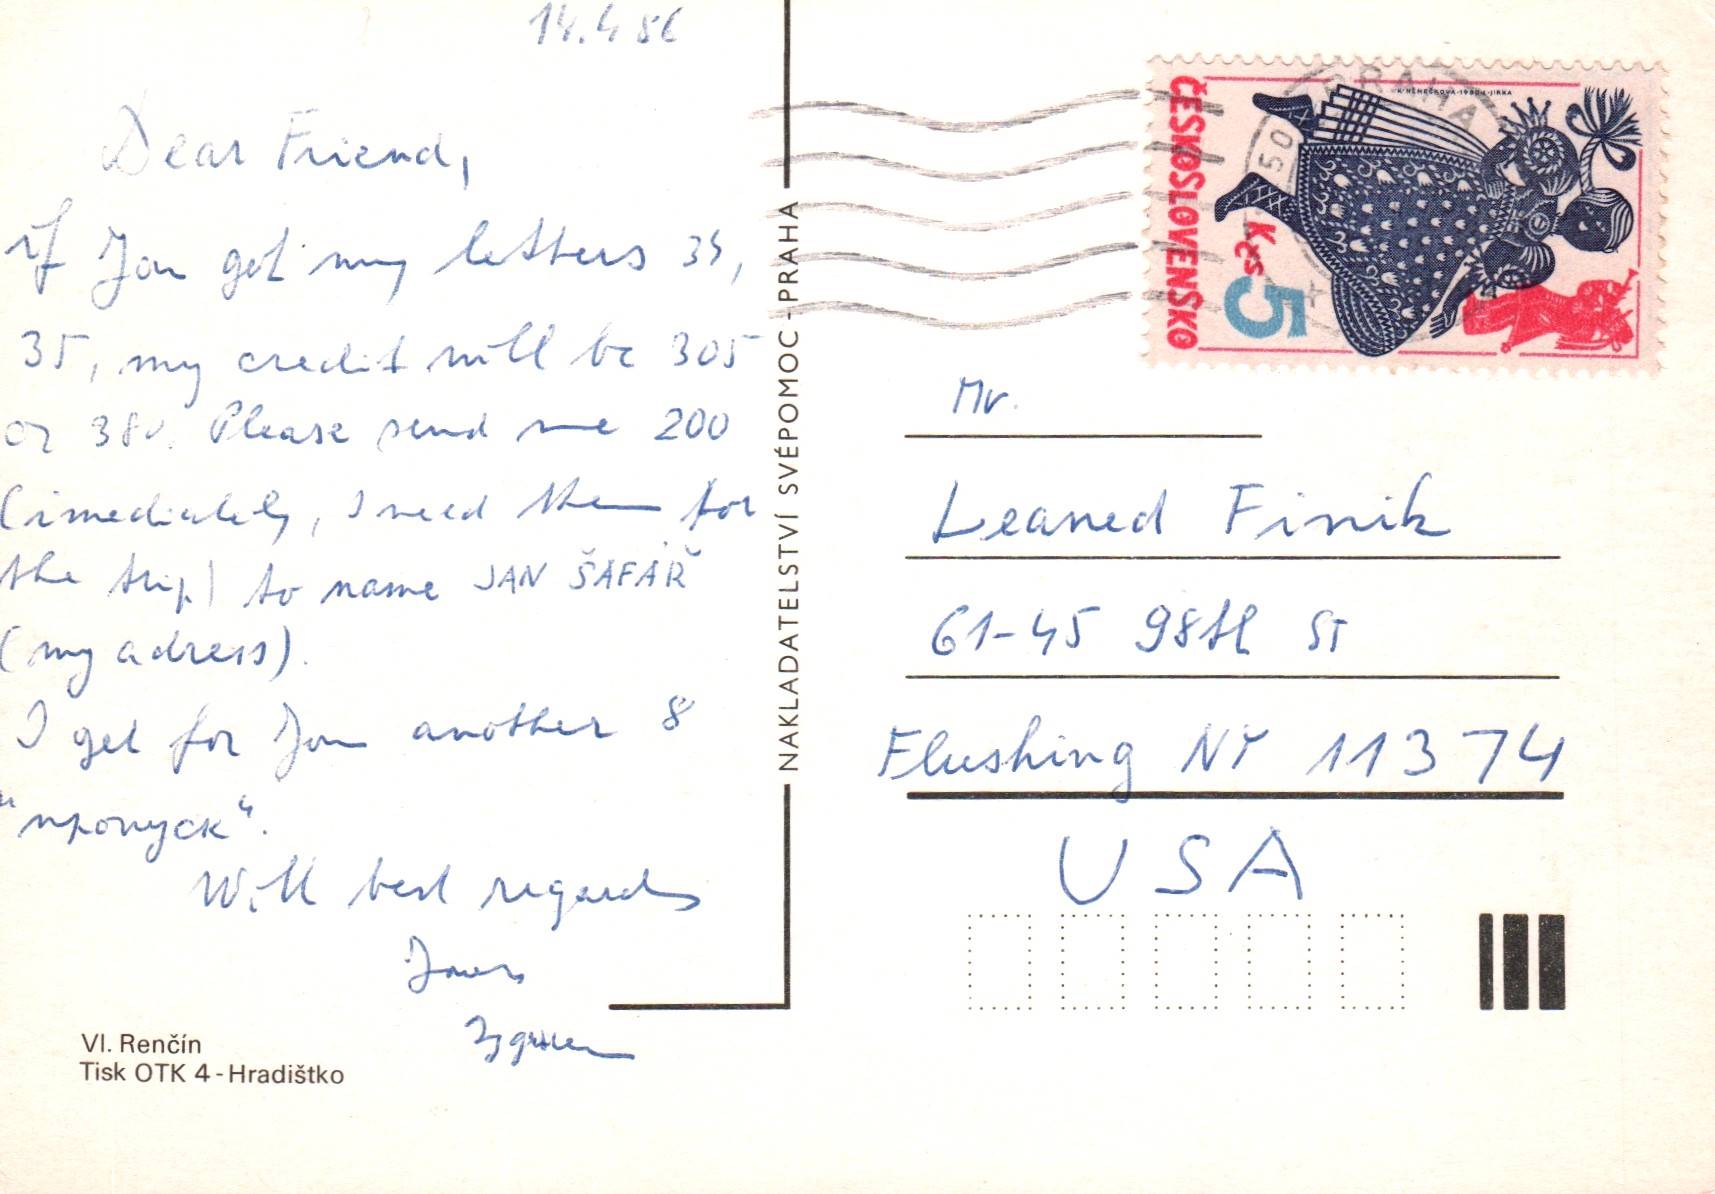 14.4 86
Dear Friend,
if You get my letters 34,
35, my credit will be 305
or 380. Please send me 200
(imediately, I need them for
the trip) to name JAN ŠAFÁŘ
(my adress).
I get for You another 8
With best regards
Yours
Vl. Renčín
Tisk OTK 4-Hradištko
NAKLADATELSTVÍ SVÉPOMOC - PRAHA
ČESKOSLOVENSKO
Kčs 5
K. NĚMEČKOVÁ - 1980 - J. JIRKA
PRAHA
Mr.
Leaned Finik
61-45 98th ST
Flushing NY 11374
USA